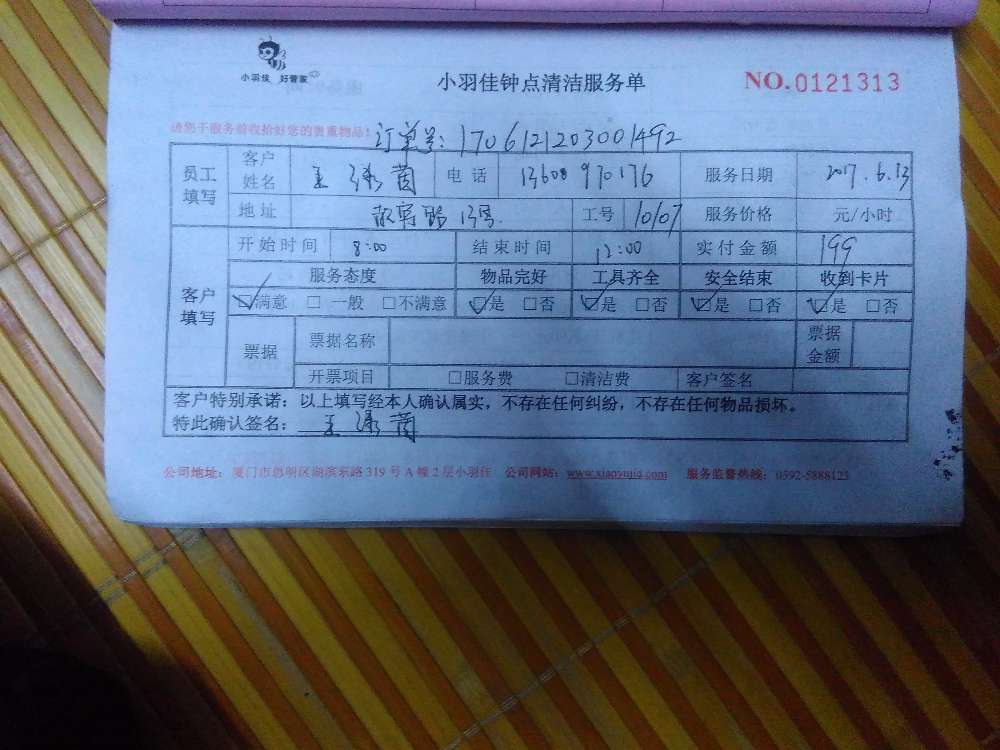 小羽佳 好管家
小羽佳钟点清洁服务单
NO.0121313
请您于服务前收拾好您的贵重物品!
订单号:1706121203001492
员工填写 客户姓名 王 茵 电话 13608 970176 服务日期 2017.6.13
地址 路13号. 工号 10107 服务价格 元/小时
客户填写 开始时间 8:00 结束时间 12:00 实付金额 199
服务态度 物品完好 工具齐全 安全结束 收到卡片
☑满意 □一般 □不满意 ☑是 □否 ☑是 □否 ☑是 □否 ☑是 □否
票据 票据名称 票据金额
开票项目 □服务费 □清洁费 客户签名
客户特别承诺:以上填写经本人确认属实,不存在任何纠纷,不存在任何物品损坏。
特此确认签名: 王 茵
公司地址:厦门市思明区湖滨东路 319 号 A 幢 2 层小羽佳 公司网站:www.xiaoyujia.com 服务监督热线:0592-5888123